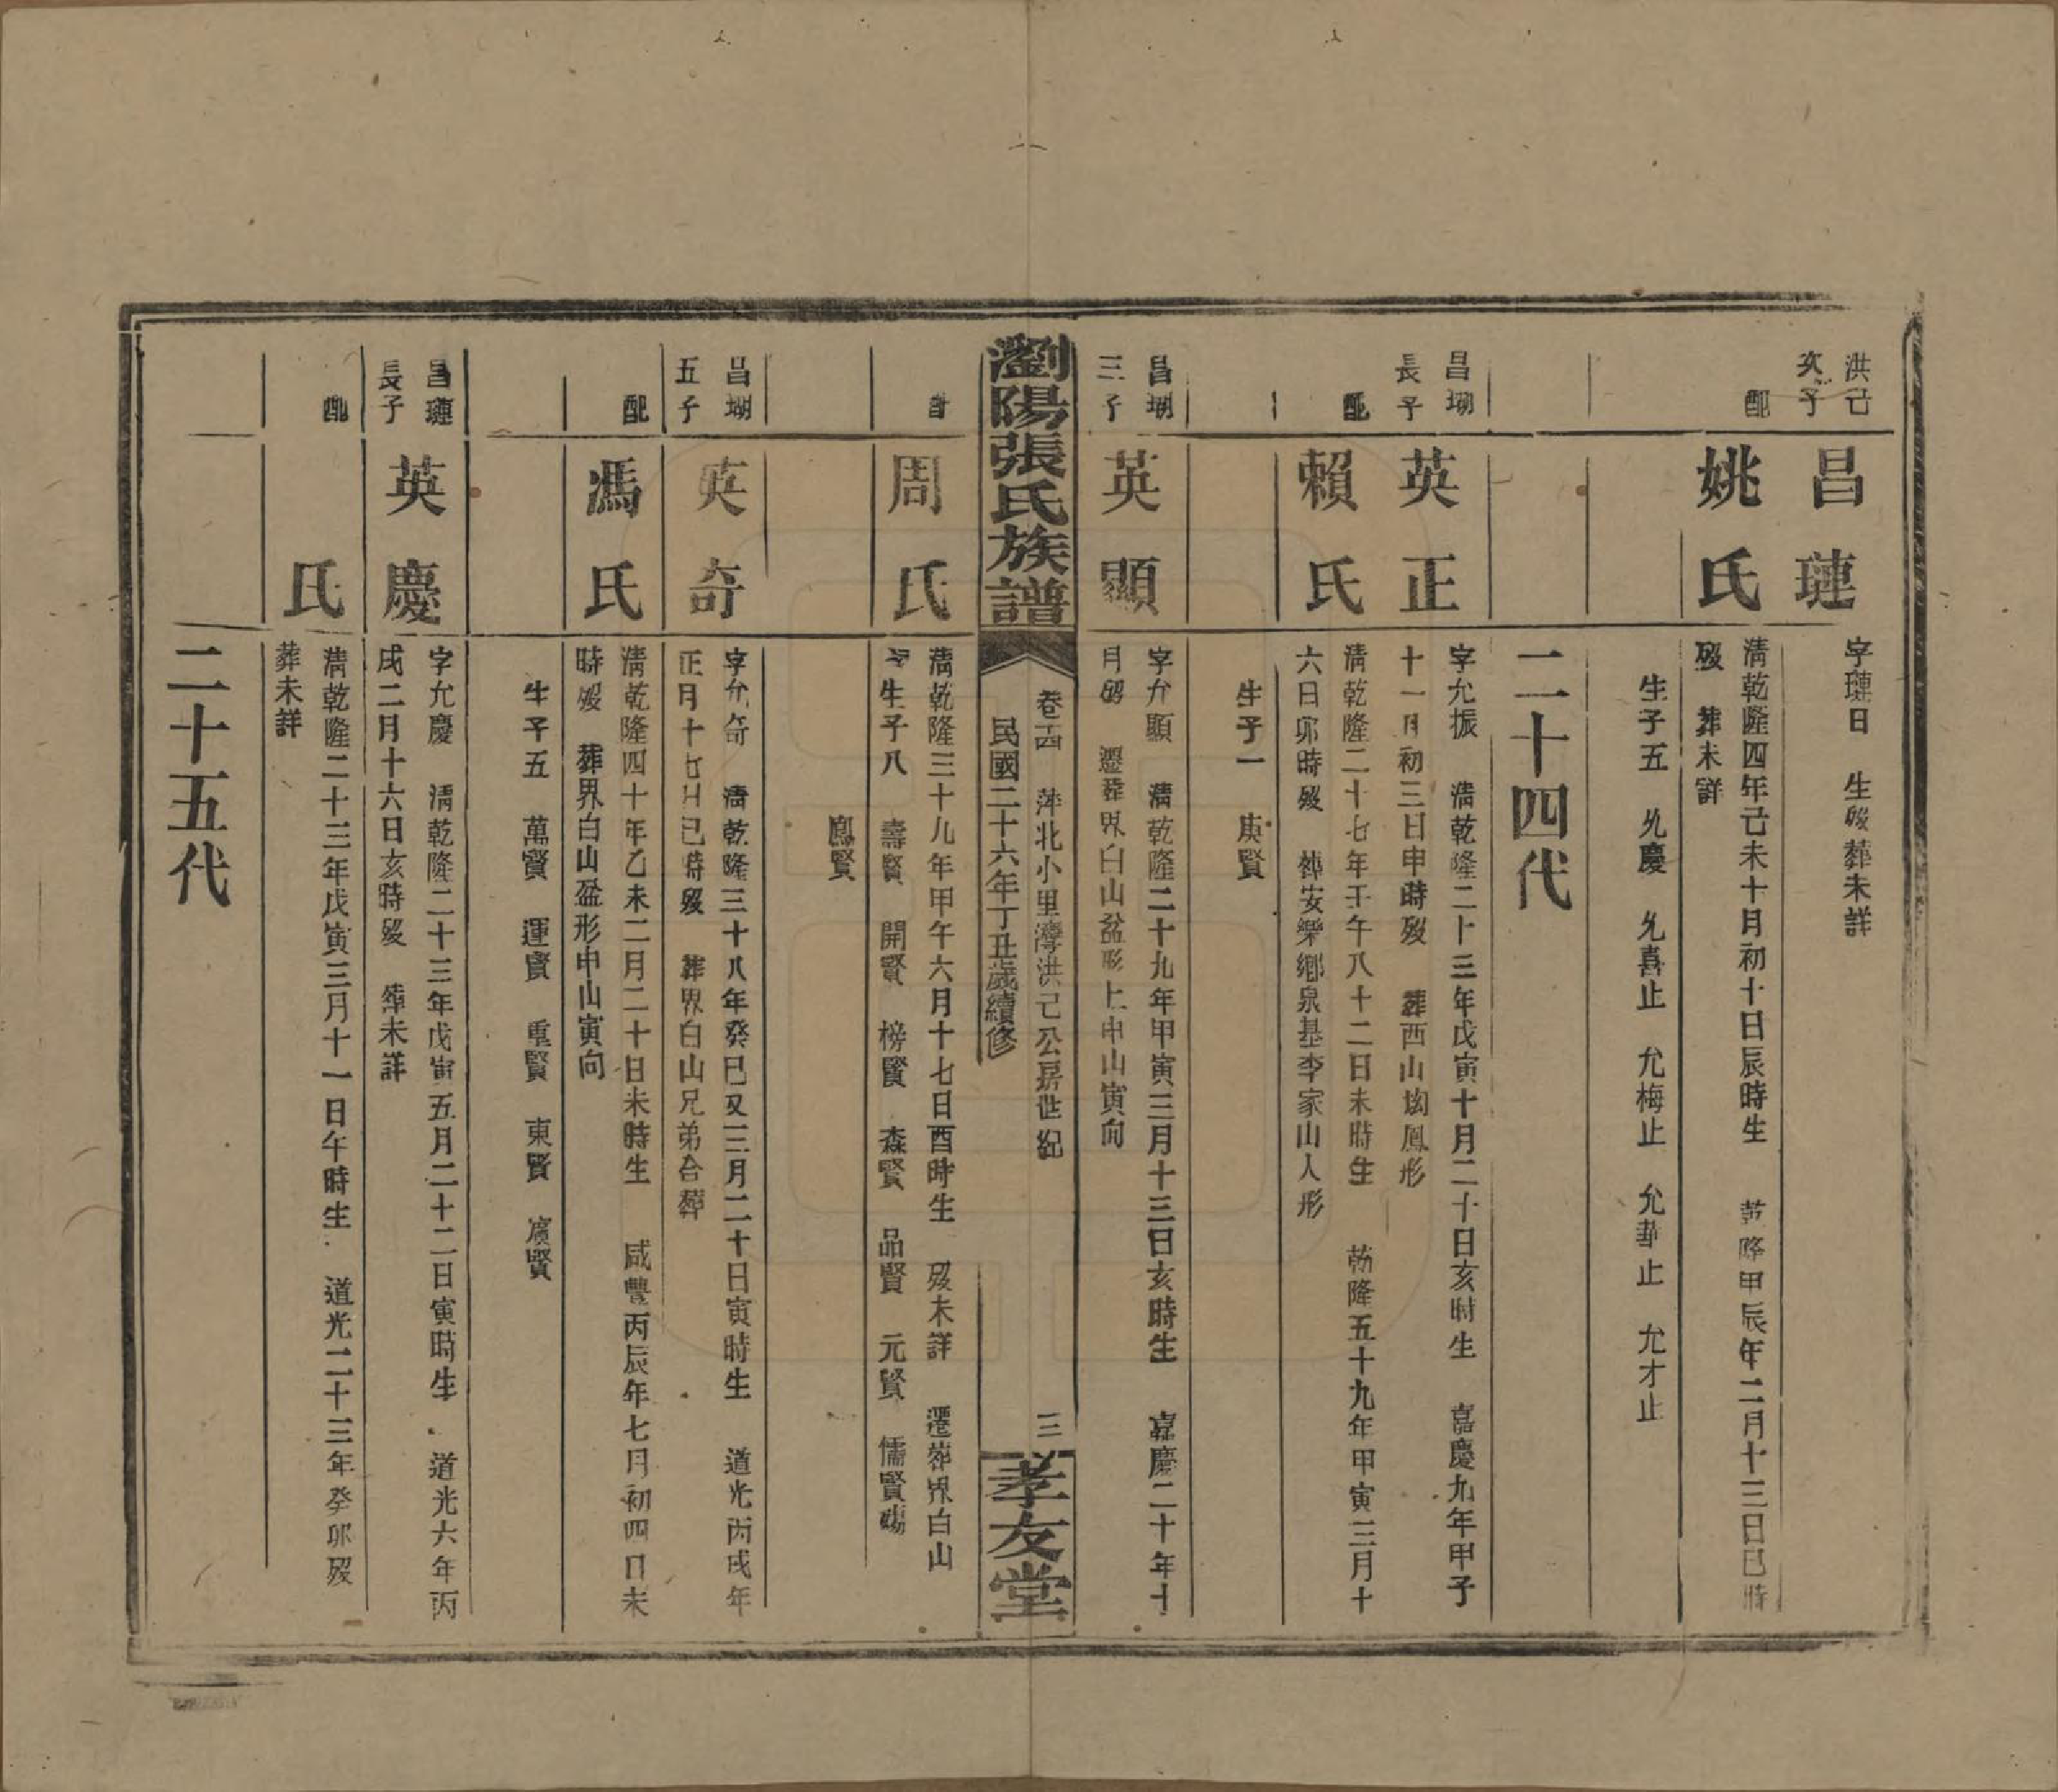 洪己
次子
昌璉
字璉日　生歿葬未詳
配
姚氏
清乾隆四年己未十月初十日辰時生　乾隆甲辰年二月十三日巳時
歿　葬未詳
生子五　允慶　允喜止　允梅止　允華止　允才止
二十四代
昌瑚
長子
英正
字允振　清乾隆二十三年戊寅十月二十日亥時生　嘉慶九年甲子
十一月初三日申時歿　葬西山坳鳳形
配
賴氏
清乾隆二十七年壬午八十二日未時生　乾隆五十九年甲寅三月十
六日卯時歿　葬安樂鄉泉基李家山人形
生子一　庚賢
昌瑚
三子
英顯
字允顯　清乾隆二十九年甲寅三月十三日亥時生　嘉慶二十年十
月歿　遷葬界白山盆形上申山寅向
瀏陽張氏族譜
卷十四　萍北小里灣洪己公房世紀　三
民國二十六年丁丑歲續修
孝友堂
周氏
清乾隆三十九年甲午六月十七日酉時生　歿未詳　遷葬界白山
生子八　壽賢　開賢　榜賢　森賢　品賢　元賢　儒賢殤
鳳賢
昌瑚
五子
英奇
字允奇　清乾隆三十八年癸巳又三月二十日寅時生　道光丙戌年
正月十七日巳時歿　葬界白山兄弟合葬
配
馮氏
清乾隆四十年乙未二月二十日未時生　咸豐丙辰年七月初四日未
時歿　葬界白山盆形申山寅向
生子五　萬賢　運賢　重賢　東賢　廣賢
昌璉
長子
英慶
字允慶　清乾隆二十三年戊寅五月二十二日寅時生　道光六年丙
戌二月十六日亥時歿　葬未詳
配
氏
清乾隆二十三年戊寅三月十一日午時生　道光二十三年癸卯歿
葬未詳
二十五代